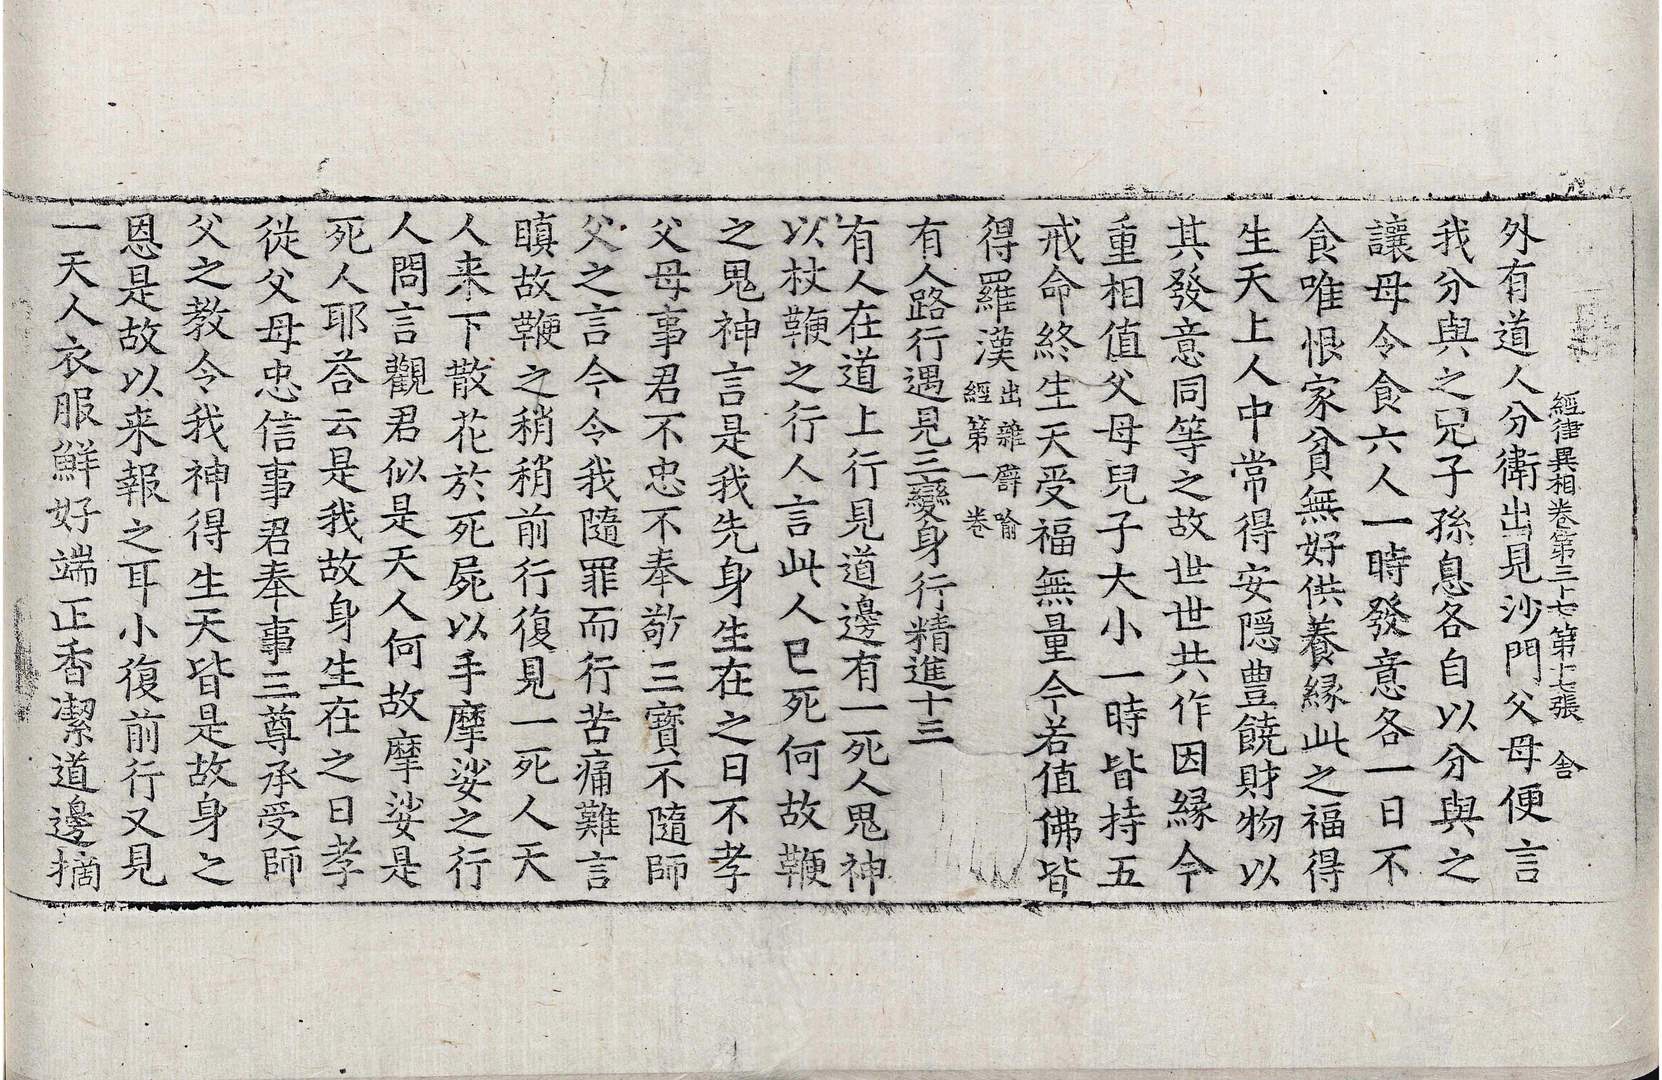 經律異相卷第三十七 第十七張 舎
外有道人分衛出見沙門父母便言
我分與之兄子孫息各自以分與之
讓母令食六人一時發意各一日不
食唯恨家貧無好供養緣此之福得
生天上人中常得安隱豊饒財物以
其發意同等之故世世共作因緣今
重相值父母兒子大小一時皆持五
戒命終生天受福無量今若值佛皆
得羅漢出雜譬喻經第一卷
有人路行遇見三變身行精進十三
有人在道上行見道邊有一死人鬼神
以杖鞭之行人言此人已死何故鞭
之鬼神言是我先身生在之日不孝
父母事君不忠不奉敬三寶不隨師
父之言今令我隨罪而行苦痛難言
瞋故鞭之稍稍前行復見一死人天
人来下散花於死屍以手摩娑之行
人問言觀君似是天人何故摩娑是
死人耶荅云是我故身生在之日孝
從父母忠信事君奉事三尊承受師
父之教令我神得生天皆是故身之
恩是故以来報之耳小復前行又見
一天人衣服鮮好端正香潔道邊摘